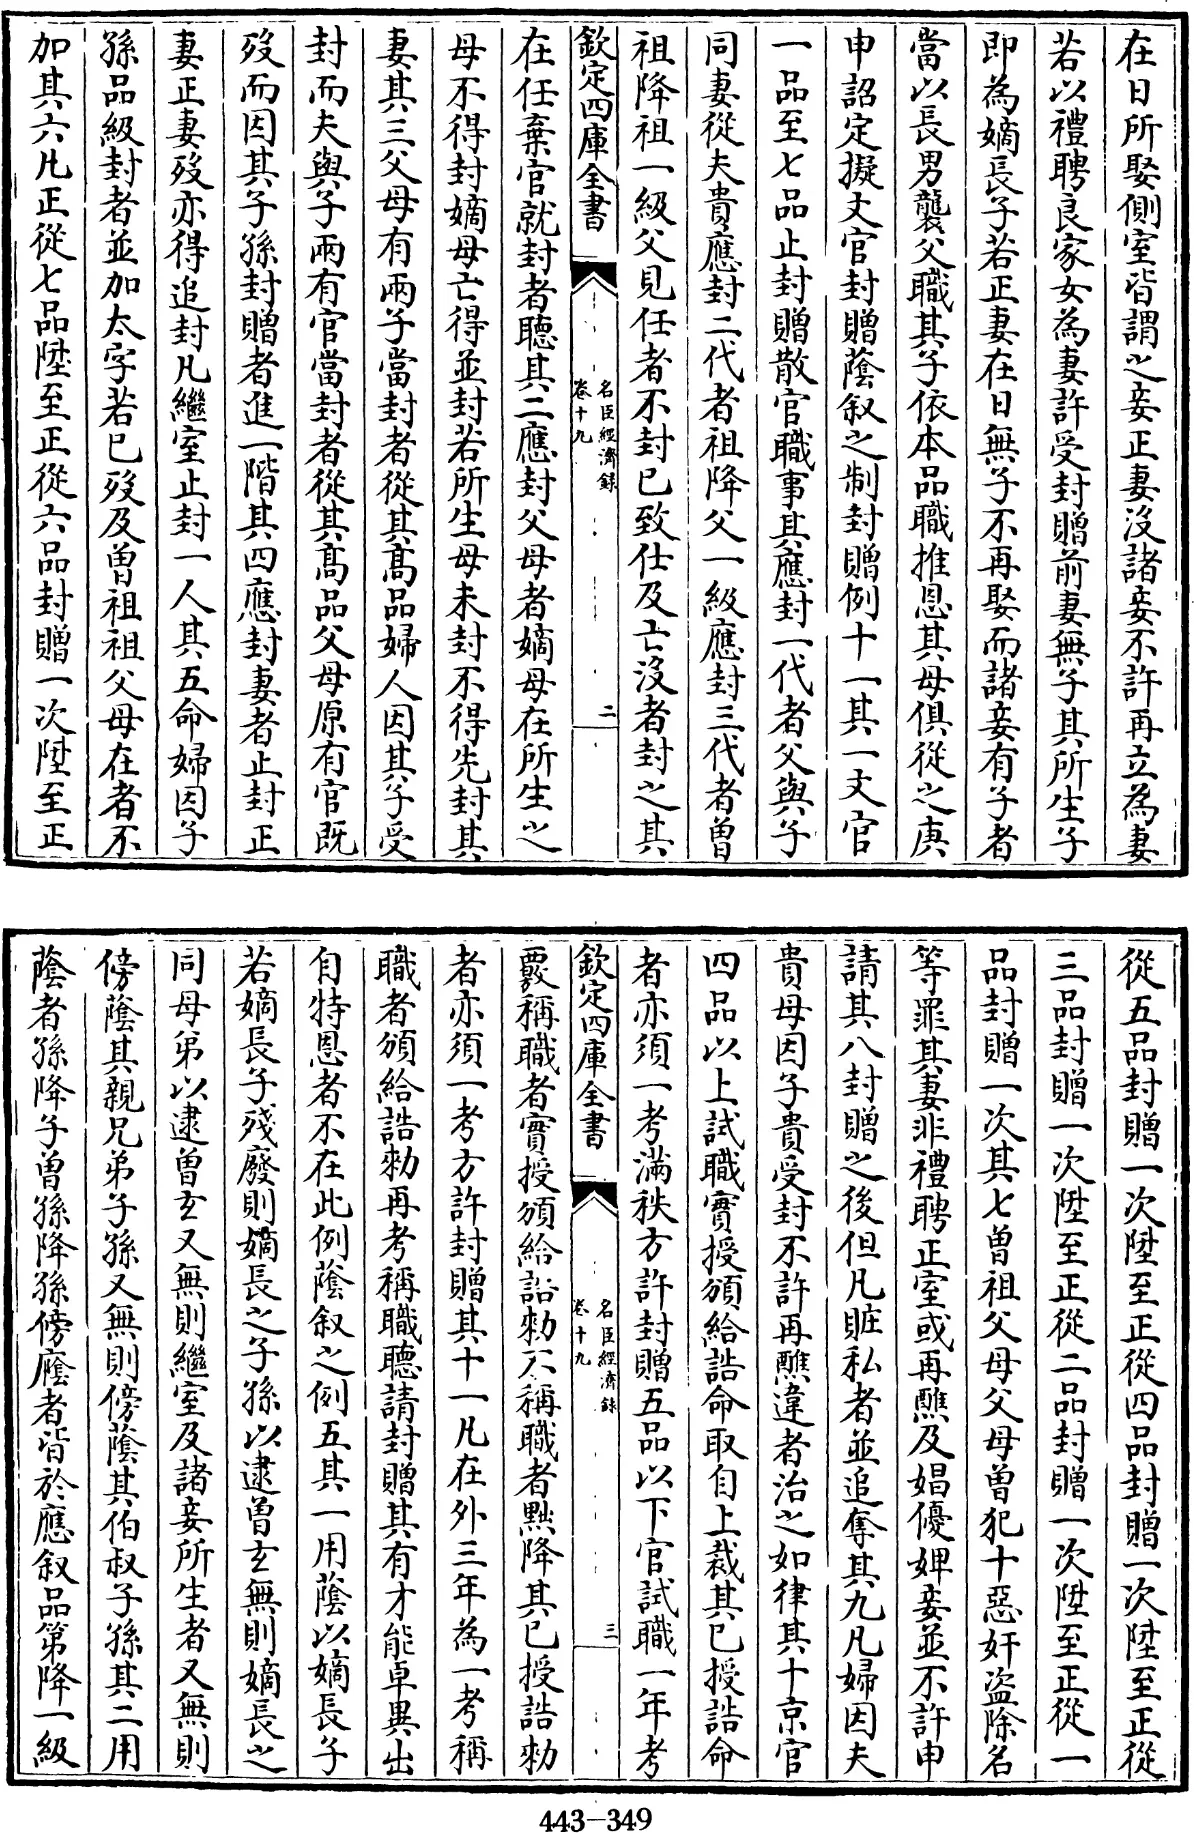 在日所娶側室皆謂之妾正妻沒諸妾不許再立為妻
若以禮聘良家女為妻許受封贈前妻無子其所生子
即為嫡長子若正妻在日無子不再娶而諸妾有子者
當以長男襲父職其子依本品職推恩其母俱從之庚
申詔定擬文官封贈蔭叙之制封贈例十一其一文官
一品至七品止封贈散官職事其應封一代者父與子
同妻從夫貴應封二代者祖降父一級應封三代者曾
祖降祖一級父見任者不封已致仕及亡沒者封之其
欽定四庫全書
名臣經濟錄
卷十九
二
在任棄官就封者聽其二應封父母者嫡母在所生之
母不得封嫡母亡得並封若所生母未封不得先封其
妻其三父母有兩子當封者從其髙品婦人因其子受
封而夫與子兩有官當封者從其髙品父母原有官既
歿而因其子孫封贈者進一階其四應封妻者止封正
妻正妻歿亦得追封凡繼室止封一人其五命婦因子
孫品級封者並加太字若已歿及曾祖祖父母在者不
加其六凡正從七品陞至正從六品封贈一次陞至正
從五品封贈一次陞至正從四品封贈一次陞至正從
三品封贈一次陞至正從二品封贈一次陞至正從一
品封贈一次其七曾祖父母父母曾犯十惡奸盗除名
等罪其妻非禮聘正室或再醮及娼優婢妾並不許申
請其八封贈之後但凡賍私者並追奪其九凡婦因夫
貴母因子貴受封不許再醮違者治之如律其十京官
四品以上試職實授頒給誥命取自上裁其已授誥命
者亦須一考滿秩方許封贈五品以下官試職一年考
欽定四庫全書
名臣經濟錄
卷十九
三
覈稱職者實授頒給誥勅不稱職者黜降其已授誥勅
者亦須一考方許封贈其十一凡在外三年為一考稱
職者頒給誥勅再考稱職聽請封贈其有才能卓異出
自特恩者不在此例蔭叙之例五其一用蔭以嫡長子
若嫡長子殘廢則嫡長之子孫以逮曾玄無則嫡長之
同母弟以逮曾玄又無則繼室及諸妾所生者又無則
傍蔭其親兄弟子孫又無則傍蔭其伯叔子孫其二用
蔭者孫降子曾孫降孫傍蔭者皆於應叙品第降一級
443-349